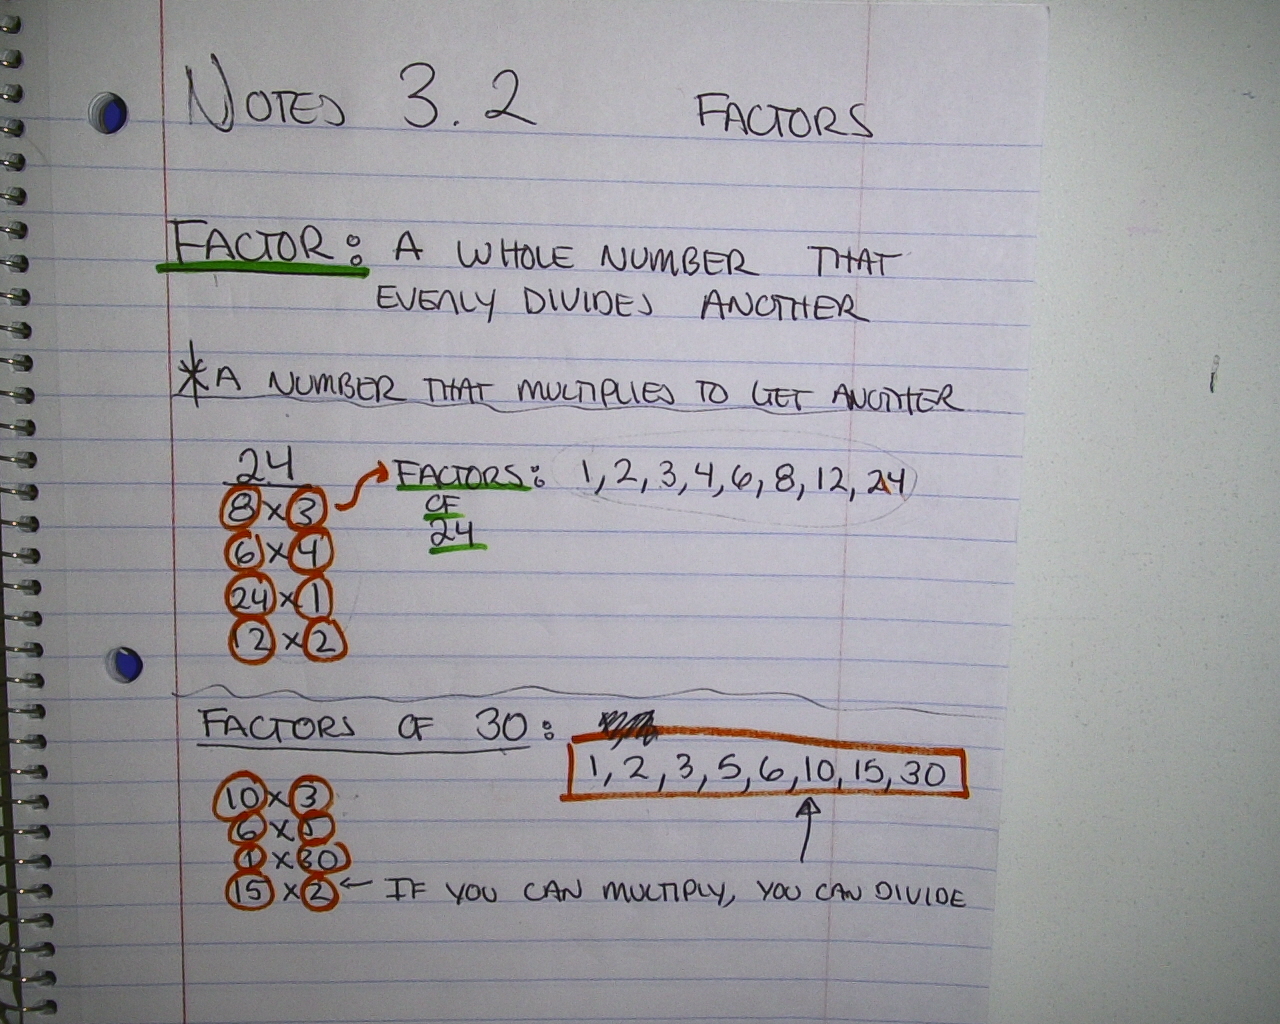 NOTES 3.2 FACTORS
FACTOR: A WHOLE NUMBER THAT
EVENLY DIVIDES ANOTHER
*A NUMBER THAT MULTIPLIES TO GET ANOTHER
24
8 x 3
6 x 4
24 x 1
12 x 2
FACTORS: 1, 2, 3, 4, 6, 8, 12, 24
OF
24
FACTORS OF 30:
1, 2, 3, 5, 6, 10, 15, 30
10 x 3
6 x 5
1 x 30
15 x 2 ← IF YOU CAN MULTIPLY, YOU CAN DIVIDE